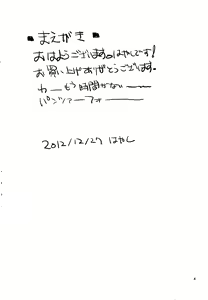 ▪まえがき▪
おはようございます。はやしです!
お買い上げありがとうございます。
わーもう時間がないーー
パンツァーフォーー
2012/12/27 はやし